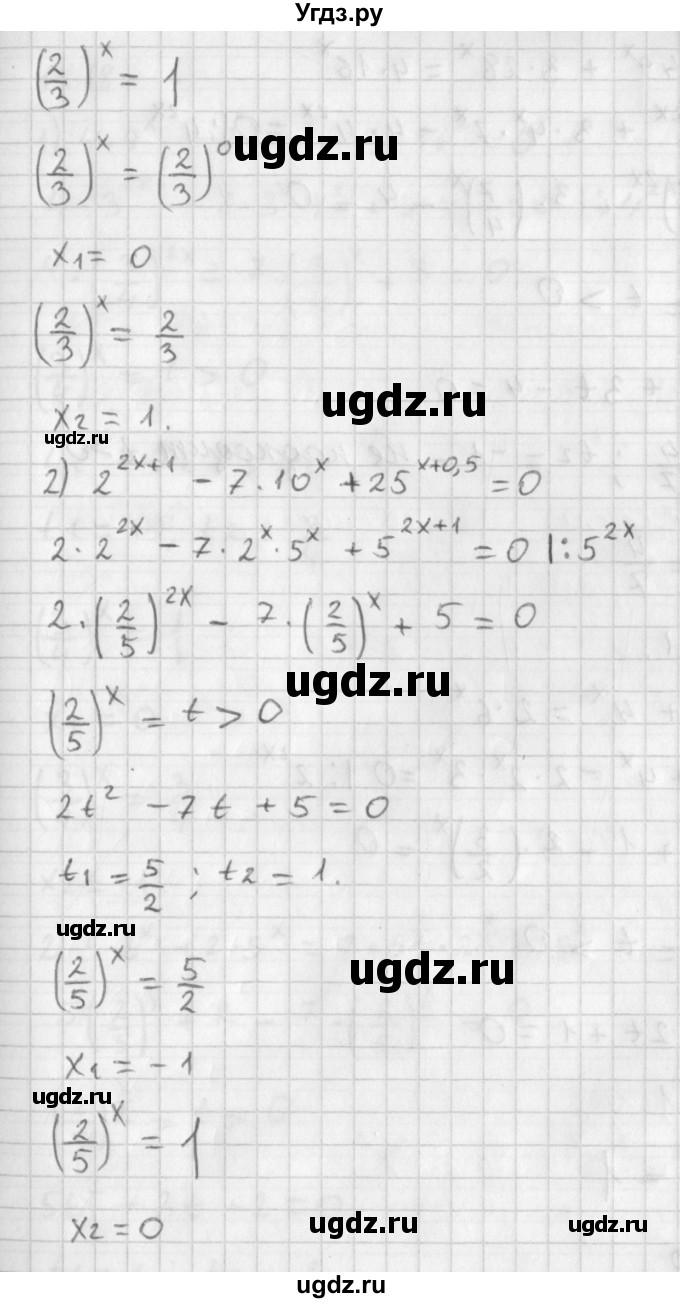 Угдз.ру
(2/3)^x = 1
ugdz.ru
(2/3)^x = (2/3)^0
x₁ = 0
(2/3)^x = 2/3
ugdz.ru
x₂ = 1.
ugdz.ru
2) 2^(2x+1) - 7·10^x + 25^(x+0,5) = 0
2·2^(2x) - 7·2^x·5^x + 5^(2x+1) = 0 |:5^(2x)
2·(2/5)^(2x) - 7·(2/5)^x + 5 = 0
ugdz.ru
(2/5)^x = t > 0
2t² - 7t + 5 = 0
t₁ = 5/2 ; t₂ = 1.
ugdz.ru
(2/5)^x = 5/2
ugdz.ru
x₁ = -1
ugdz.ru
(2/5)^x = 1
x₂ = 0
ugdz.ru
ugdz.ru
ugdz.ru